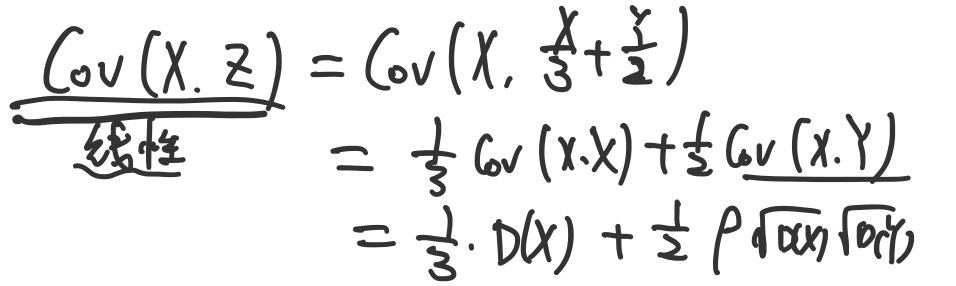 Cov(X. Z) = Cov(X, X/3 + Y/2)
线性性
= 1/3 Cov(X.X) + 1/2 Cov(X.Y)
= 1/3 · D(X) + 1/2 ρ √D(X) √D(Y)